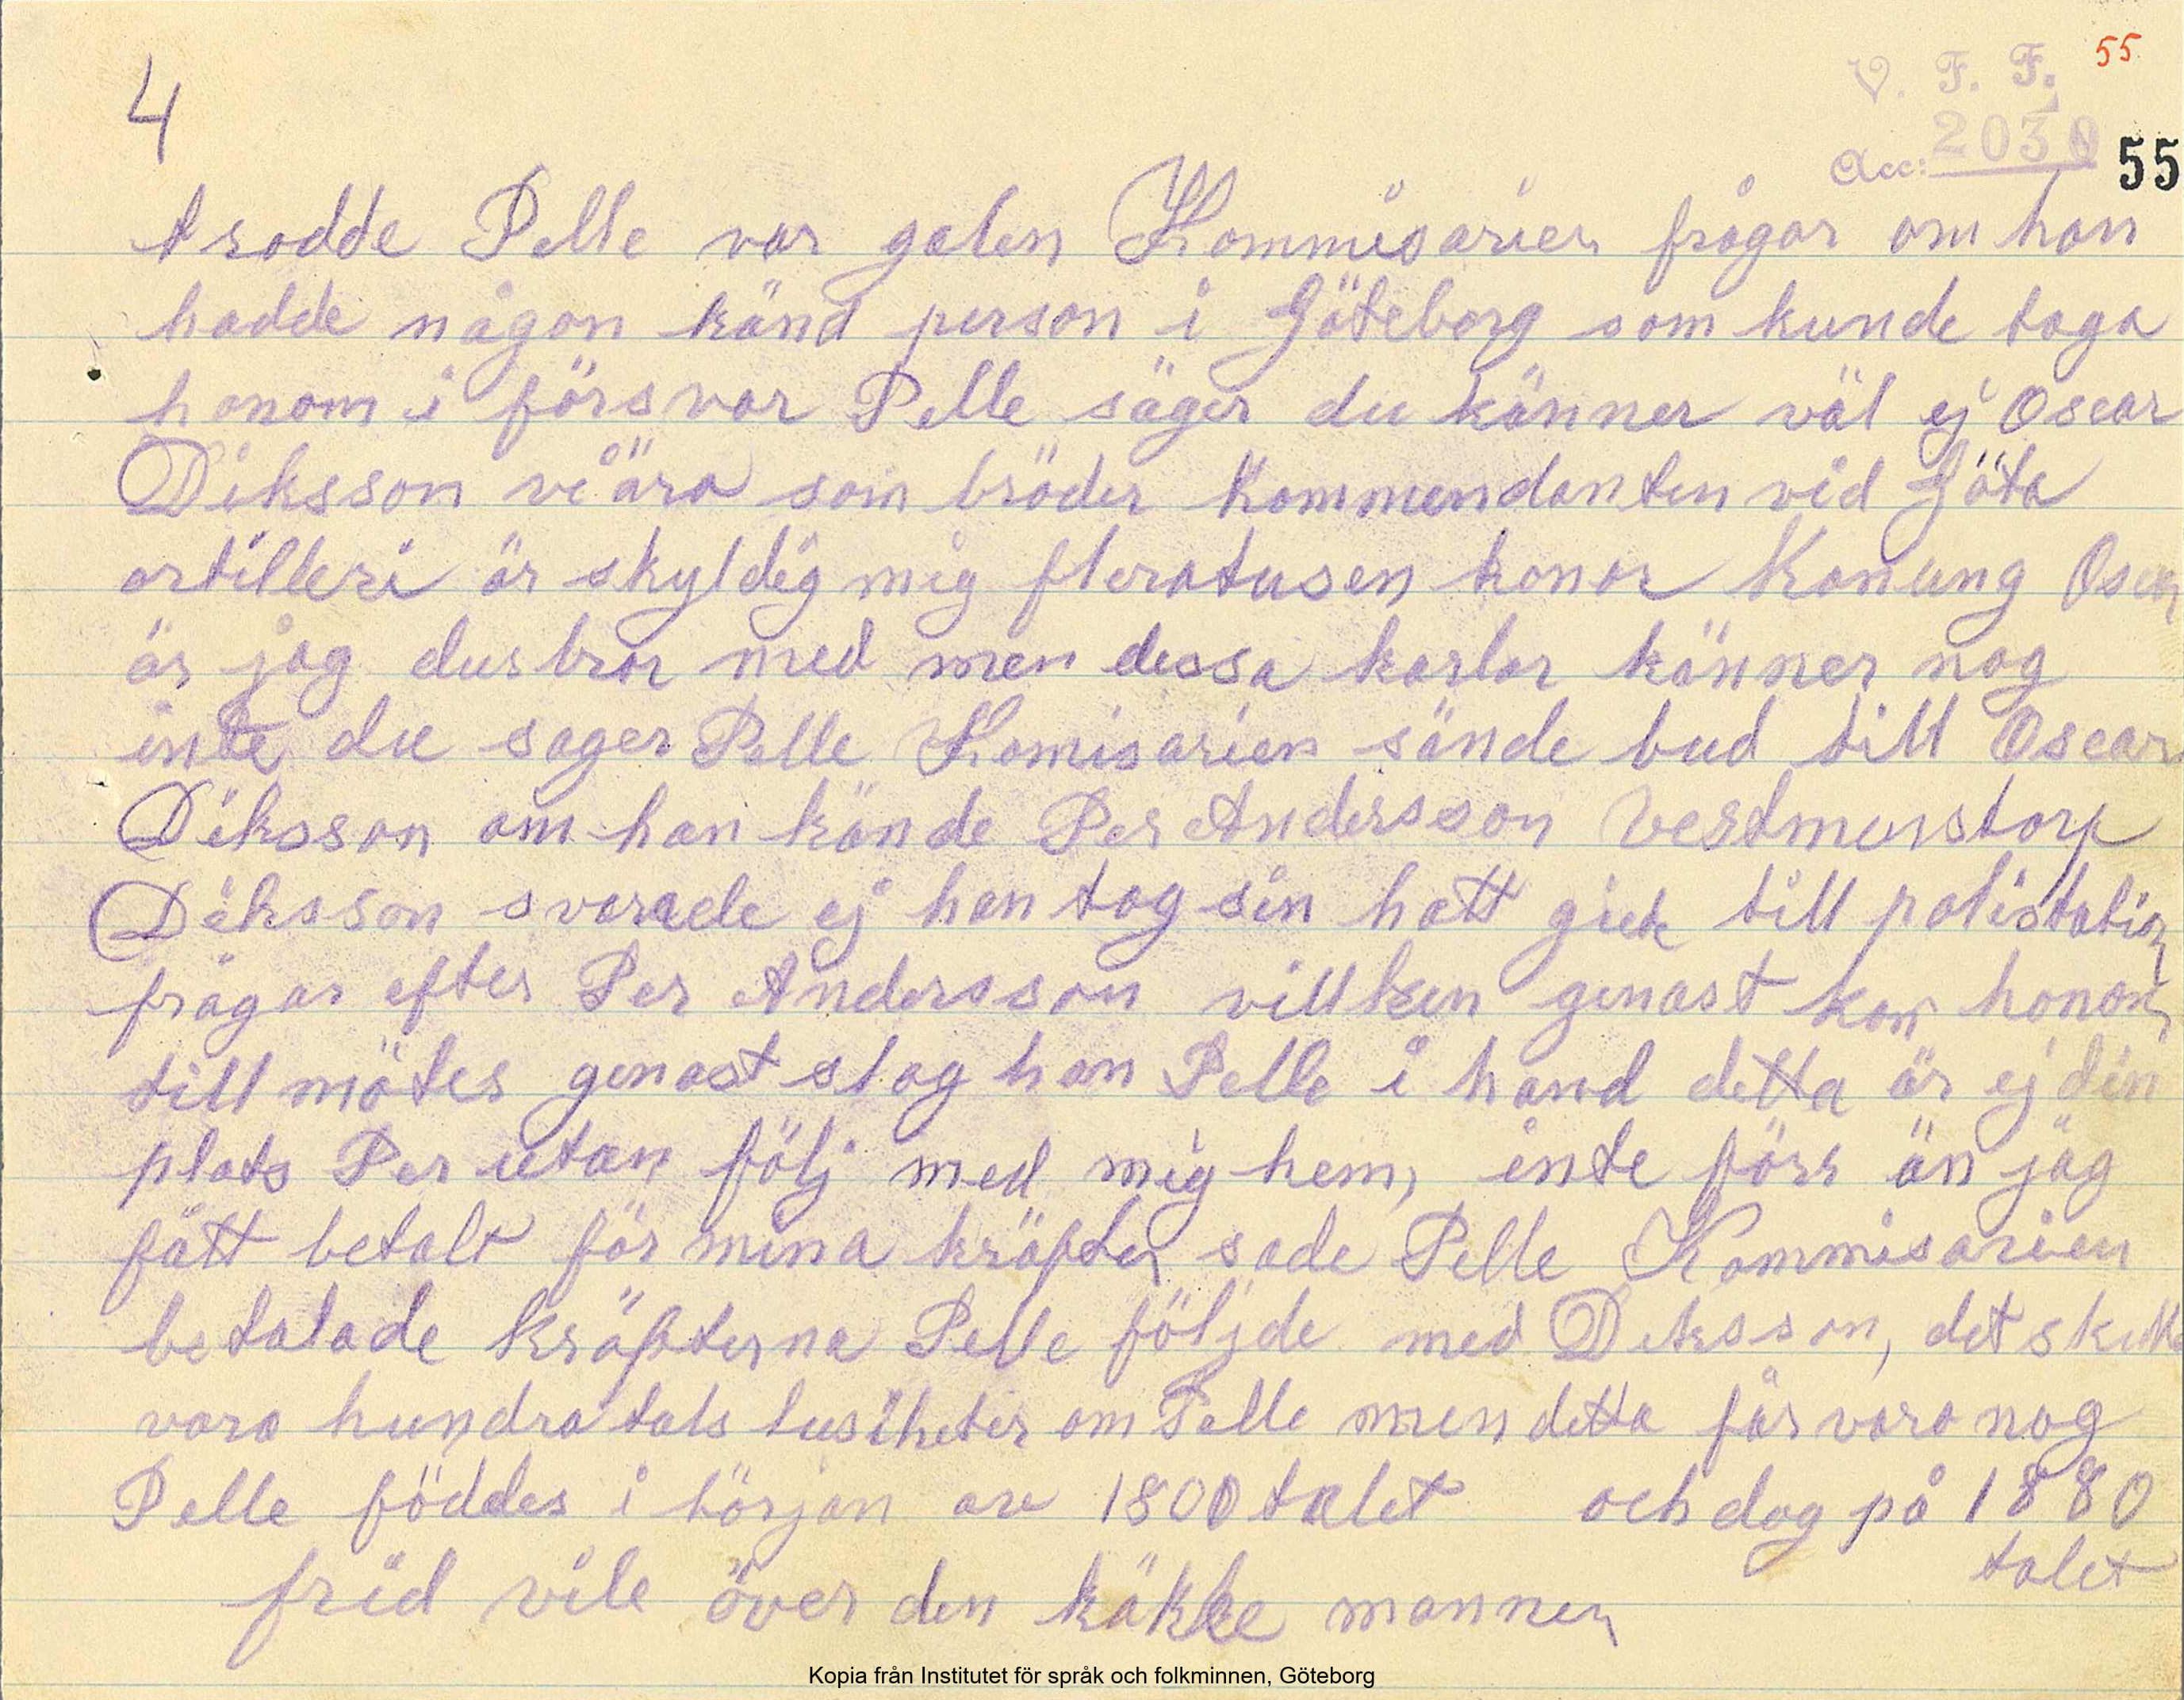 55
V. F. F.
4
Acc: 2030 55
trodde Pelle var galen Kommisarien frågar om han
hadde någon känd person i Göteborg som kunde taga
honom i försvar Pelle säger du känner väl ej Oscar
Diksson vi ära som bröder Kommendanten vid Göta
artilleri är skyldig mig fleratusen konor Konung Oscar
är jag dusbror med men dessa karlar känner nog
inte du sager Pelle Komisarien sände bud till Oscar
Diksson om han kände Per Andersson
Diksson svarade ej han tog sin hatt gick till polistation
frågar efter Per Andersson villken genast kom honom
till mötes genast slog han Pelle i hand detta är ej din
plats Per utan följ med mig hem, inte förr än jag
fått betalt för mina kräfter sade Pelle Kommisarien
betalade kräfterna Pelle följde med Diksson, det skull
vara hundratals lusiheter om Pelle men detta får vara nog
Pelle föddes i början av 1800talet och dog på 1880
talet
frid vile över den käkke mannen
Kopia från Institutet för språk och folkminnen, Göteborg